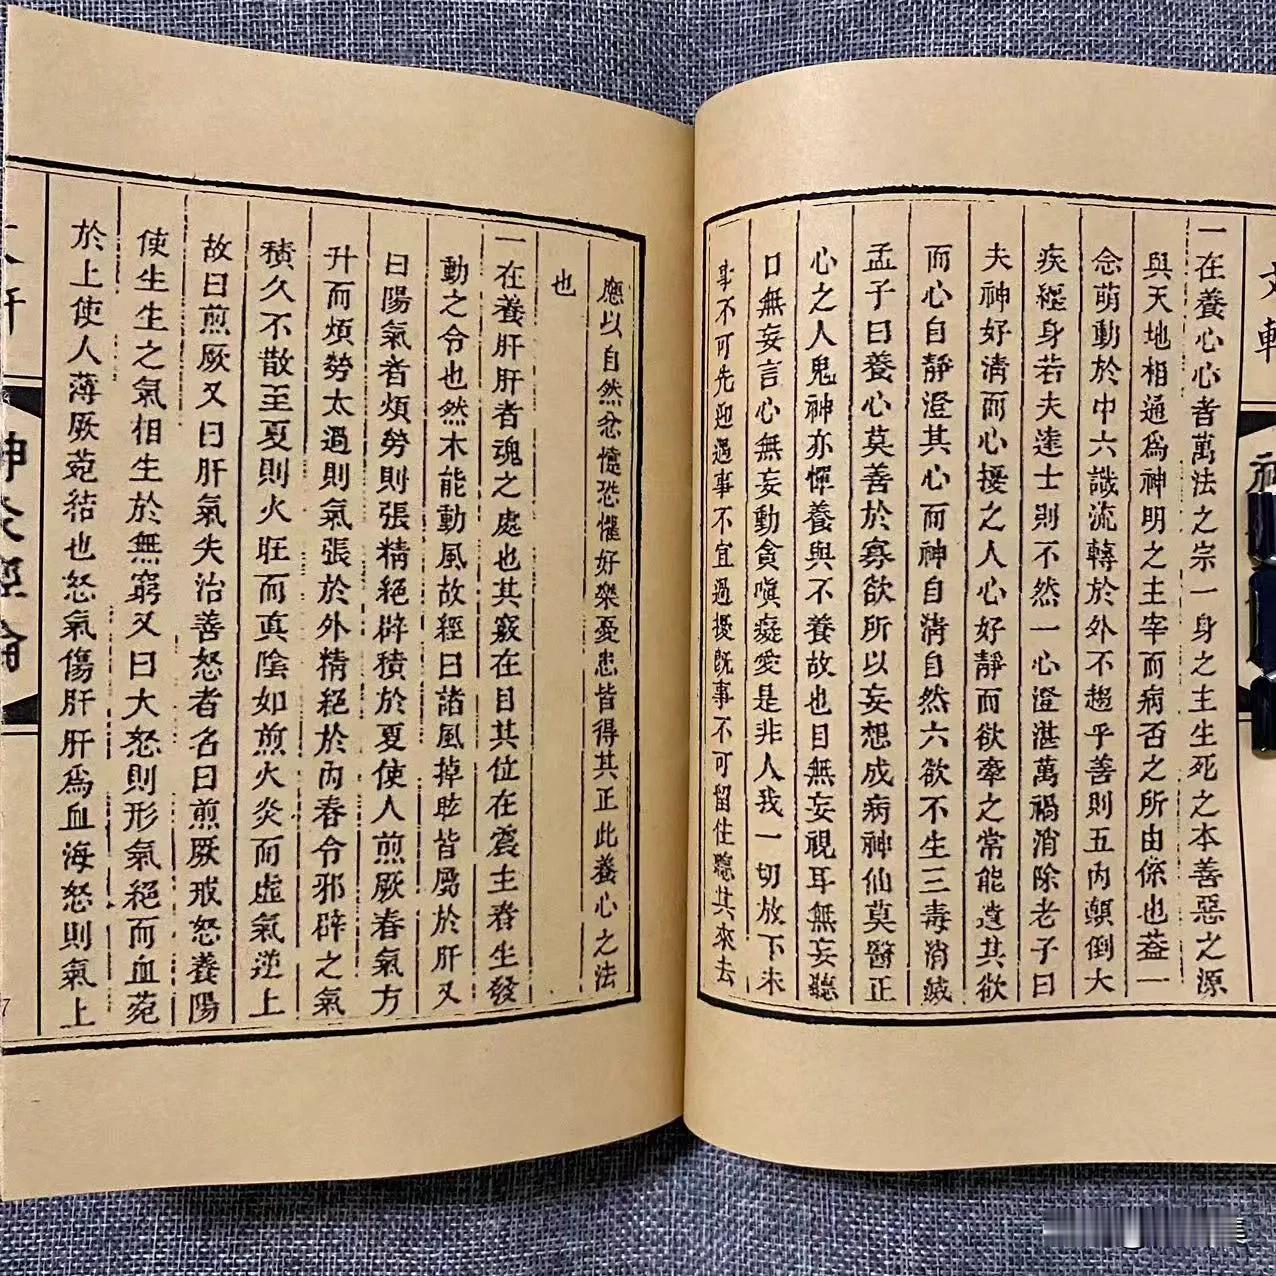 文軒
一在養心心者萬法之宗一身之主生死之本善惡之源
與天地相通爲神明之主宰而病否之所由係也葢一
念萌動於中六識流轉於外不趨乎善則五內顛倒大
疾纏身若夫達士則不然一心澄湛萬禍消除老子曰
夫神好清而心擾之人心好靜而欲牽之常能遣其欲
而心自靜澄其心而神自清自然六欲不生三毒消滅
孟子曰養心莫善於寡欲所以妄想成病神仙莫醫正
心之人鬼神亦憚養與不養故也目無妄視耳無妄聽
口無妄言心無妄動貪嗔癡愛是非人我一切放下未
事不可先迎遇事不宜過擾既事不可留住聽其來去
應以自然忿懥恐懼好樂憂患皆得其正此養心之法
也
一在養肝肝者魂之處也其竅在目其位在震主春生發
動之令也然木能動風故經曰諸風掉眩皆屬於肝又
曰陽氣者煩勞則張精絕辟積於夏使人煎厥春氣方
升而煩勞太過則氣張於外精絕於內春令邪辟之氣
積久不散至夏則火旺而真陰如煎火炎而虛氣逆上
故曰煎厥又曰肝氣失治善怒者名曰煎厥戒怒養陽
使生生之氣相生於無窮又曰大怒則形氣絕而血菀
於上使人薄厥菀結也怒氣傷肝肝爲血海怒則氣上
文軒
神灸經綸
7